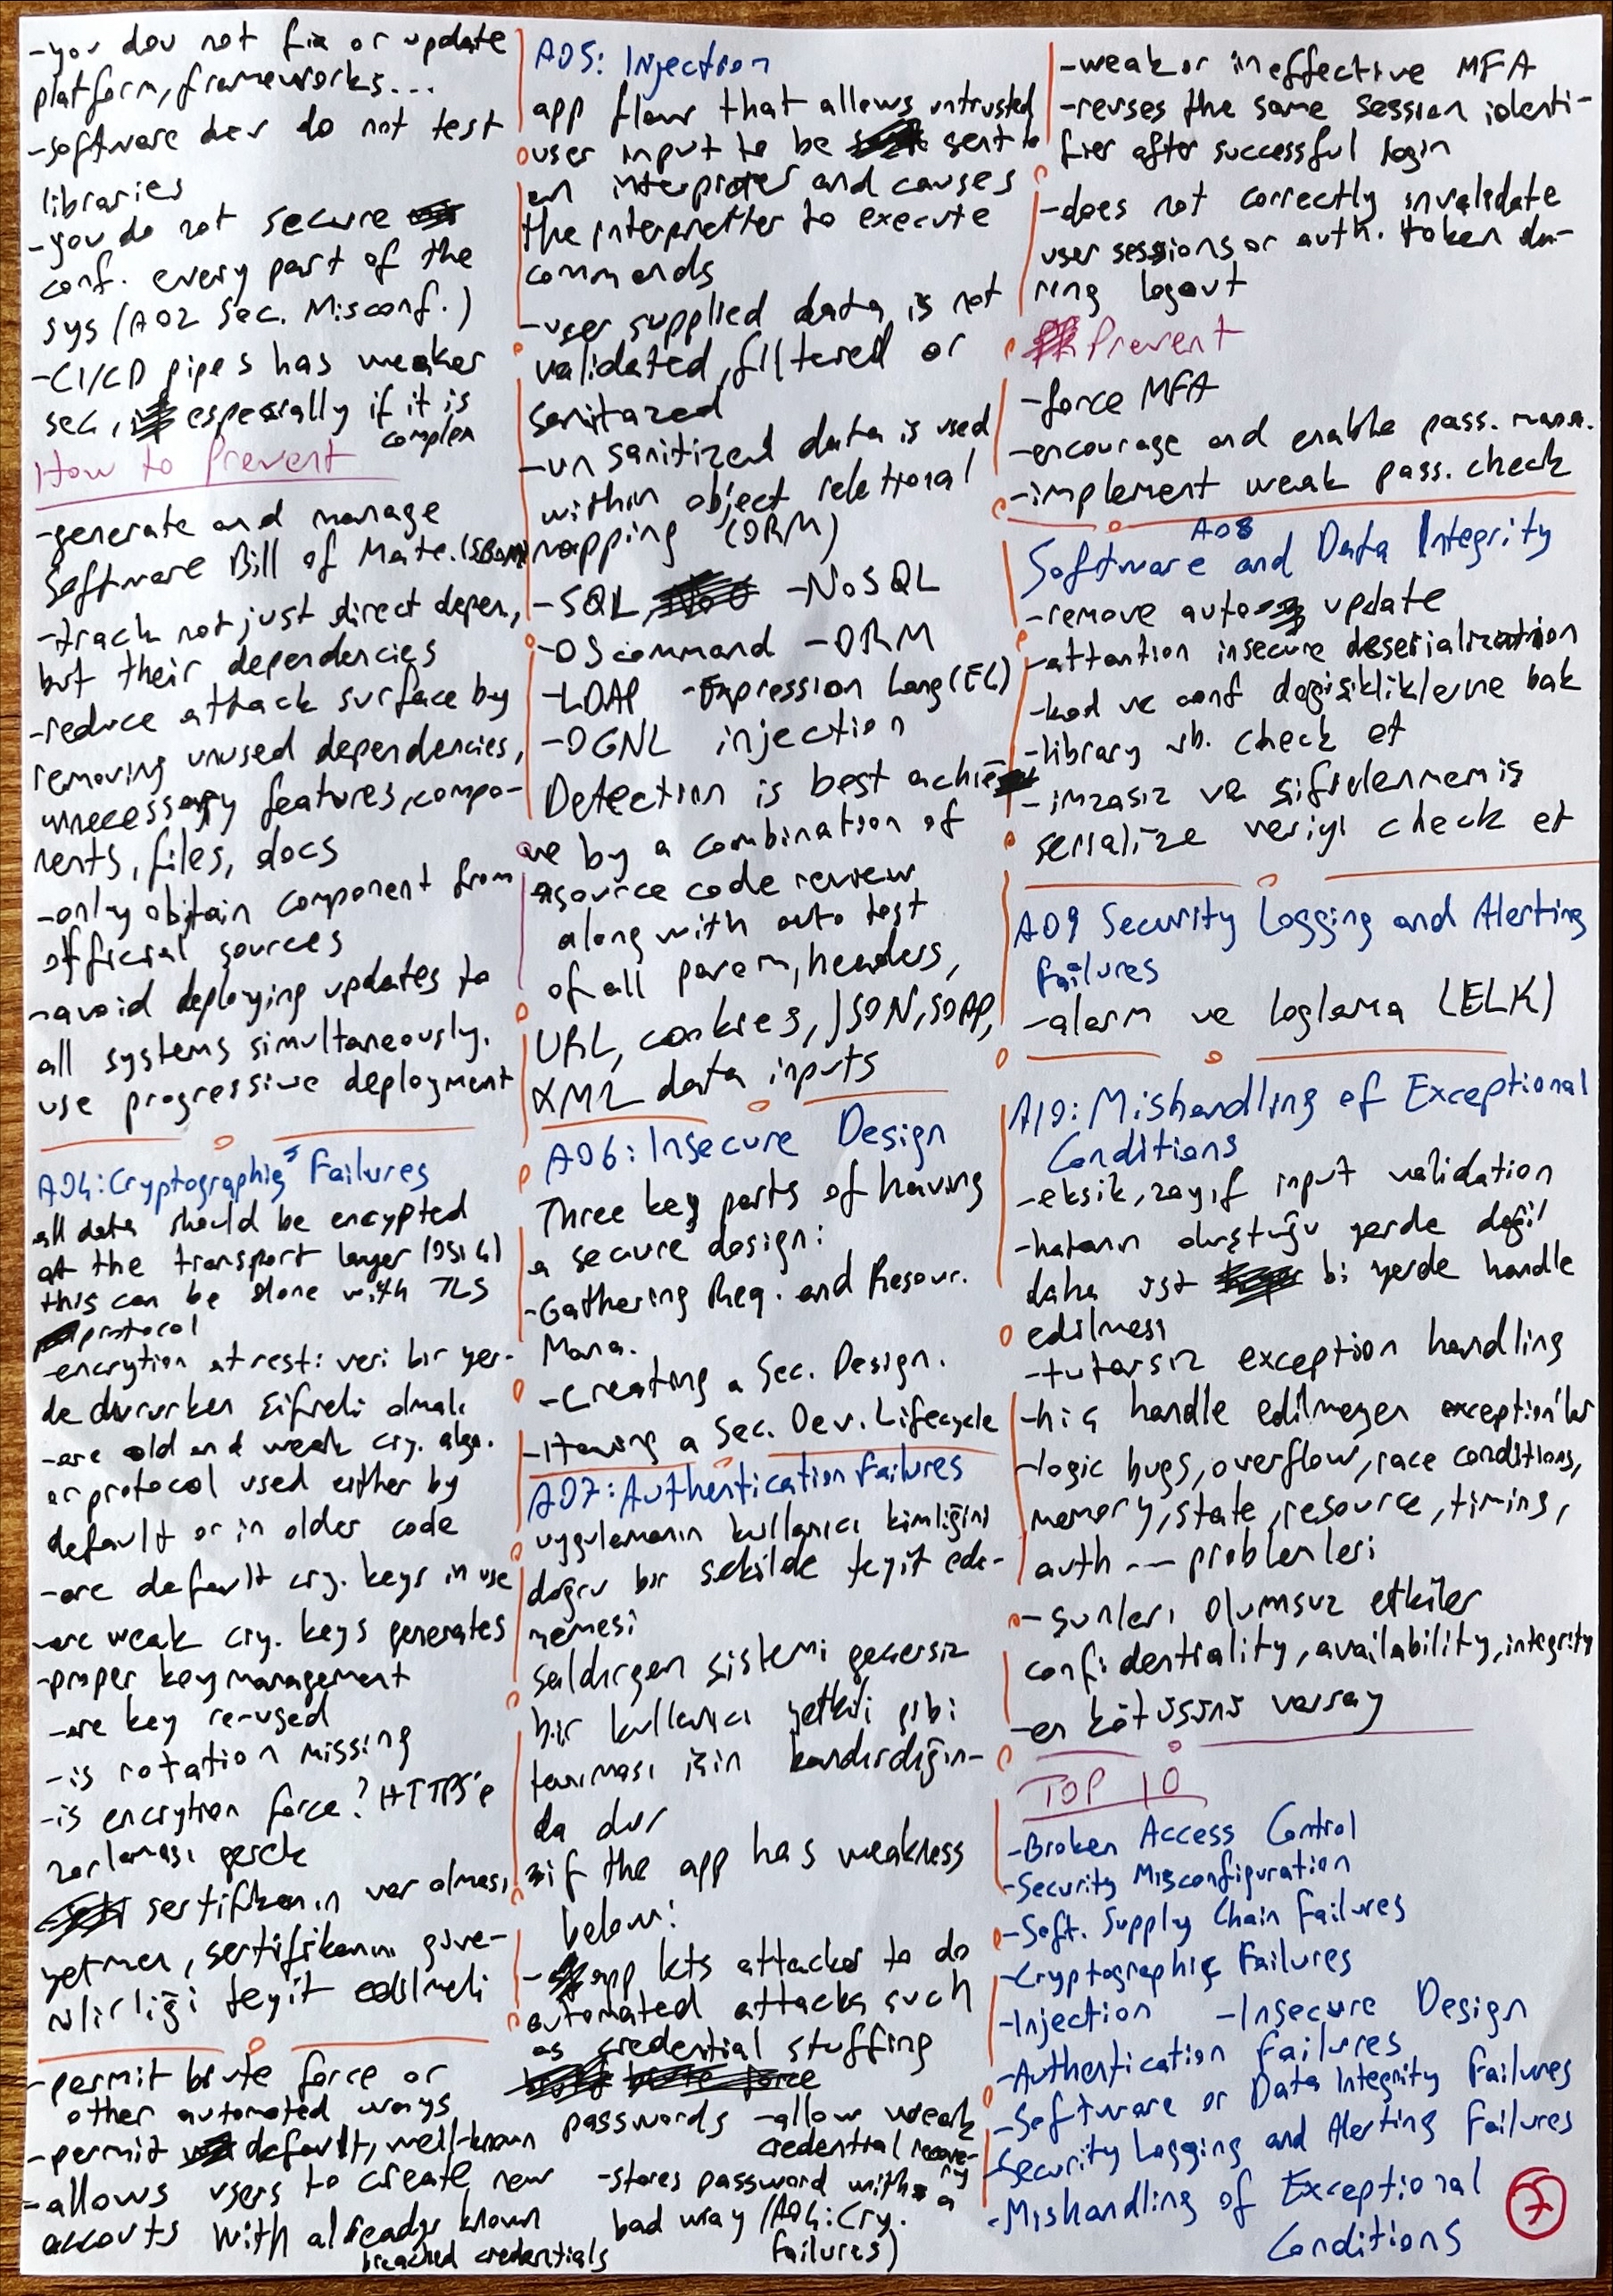 -you dov not fix or update
platform, frameworks...
-software dev do not test
libraries
-you do not secure
conf. every part of the
sys (A02 Sec. Misconf.)
-CI/CD pipes has weaker
sec, especially if it is
complex
How to Prevent
-generate and manage
Software Bill of Mate. (SBOM)
-track not just direct depen,
but their dependencies
-reduce attack surface by
removing unused dependencies,
unnecessary features, compo-
nents, files, docs
-only obtain component from
official sources
-avoid deploying updates to
all systems simultaneously.
use progressive deployment
A04: Cryptographic Failures
all data should be encypted
at the transport layer (OSI 4)
this can be done with TLS
protocol
-encrytion at rest: veri bir yer-
de dururken şifreli olmalı
-are old and weak cry. algo.
or protocol used either by
default or in older code
-are default cry. keys in use
-are weak cry. keys generates
-proper key management
-are key re-used
-is rotation missing
-is encrytion force? HTTPS'e
zorlaması gerek
sertifikanın var olması
yetmez, sertifikanın güve-
nilirliği teyit edilmeli
-permit brute force or
other automated ways
-permit default, well-known
passwords
-allows users to create new
accouts with already known
breached credentials
A05: Injection
app flow that allows untrusted
user input to be sent to
an interpreter and causes
the interpretter to execute
commands
-user supplied data is not
validated, filtered or
sanitazed
-un sanitized data is used
within object relational
mapping (ORM)
-SQL, -NoSQL
-OS command -ORM
-LDAP -Expression Lang (EL)
-OGNL injection
Detection is best achie
ve by a combination of
source code review
along with auto test
of all param, headers,
URL, cookies, JSON, SOAP,
XML data inputs
A06: Insecure Design
Three key parts of having
a secure design:
-Gathering Req. and Resour.
Mana.
-Creating a Sec. Design.
-Having a Sec. Dev. Lifecycle
A07: Authentication Failures
uygulamanın kullanıcı kimliğini
doğru bir şekilde teyit ede-
memesi
saldırgan sistemi geçersiz
bir kullanıcı yetkili gibi
tanıması için kandırdığın-
da dur
if the app has weakness
below:
-app lets attacker to do
automated attacks such
as credential stuffing
-allow weak
credential recove-
ry
-stores password with a
bad way (A04: Cry.
Failures)
-weak or ineffective MFA
-reuses the same session identi-
fier after successful login
-does not correctly invalidate
user sessions or auth. token du-
ring logout
Prevent
-force MFA
-encourage and enable pass. mana.
-implement weak pass. check
A08
Software and Data Integrity
-remove auto update
-attantion insecure deserialization
-kod ve conf değişikliklerine bak
-library vb. check et
-imzasız ve şifrelenmemiş
serialize veriyi check et
A09 Security Logging and Alerting
Failures
-alarm ve loglama (ELK)
A10: Mishandling of Exceptional
Conditions
-eksik, zayıf input validation
-hatanın oluştuğu yerde değil
daha üst bi yerde handle
edilmesi
-tutarsız exception handling
-hiç handle edilmeyen exception'lar
-logic bugs, overflow, race conditions,
memory, state, resource, timing,
auth --- problemleri
-şunları olumsuz etkiler
confidentiality, availability, integrity
-en kötüsünü varsay
TOP 10
-Broken Access Control
-Security Misconfiguration
-Soft. Supply Chain Failures
-Cryptographic Failures
-Injection -Insecure Design
-Authentication Failures
-Software or Data Integrity Failures
-Security Logging and Alerting Failures
-Mishandling of Exceptional
Conditions
7